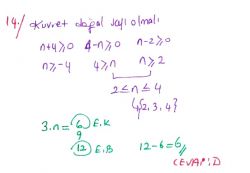 14/ Kuvvet doğal sayı olmalı
n+4≥0 4-n≥0 n-2≥0
n≥-4 4≥n n≥2
2≤n≤4
{2,3,4}
3.n= 6 E.K
9
12 E.B 12-6=6//
CEVAP:D